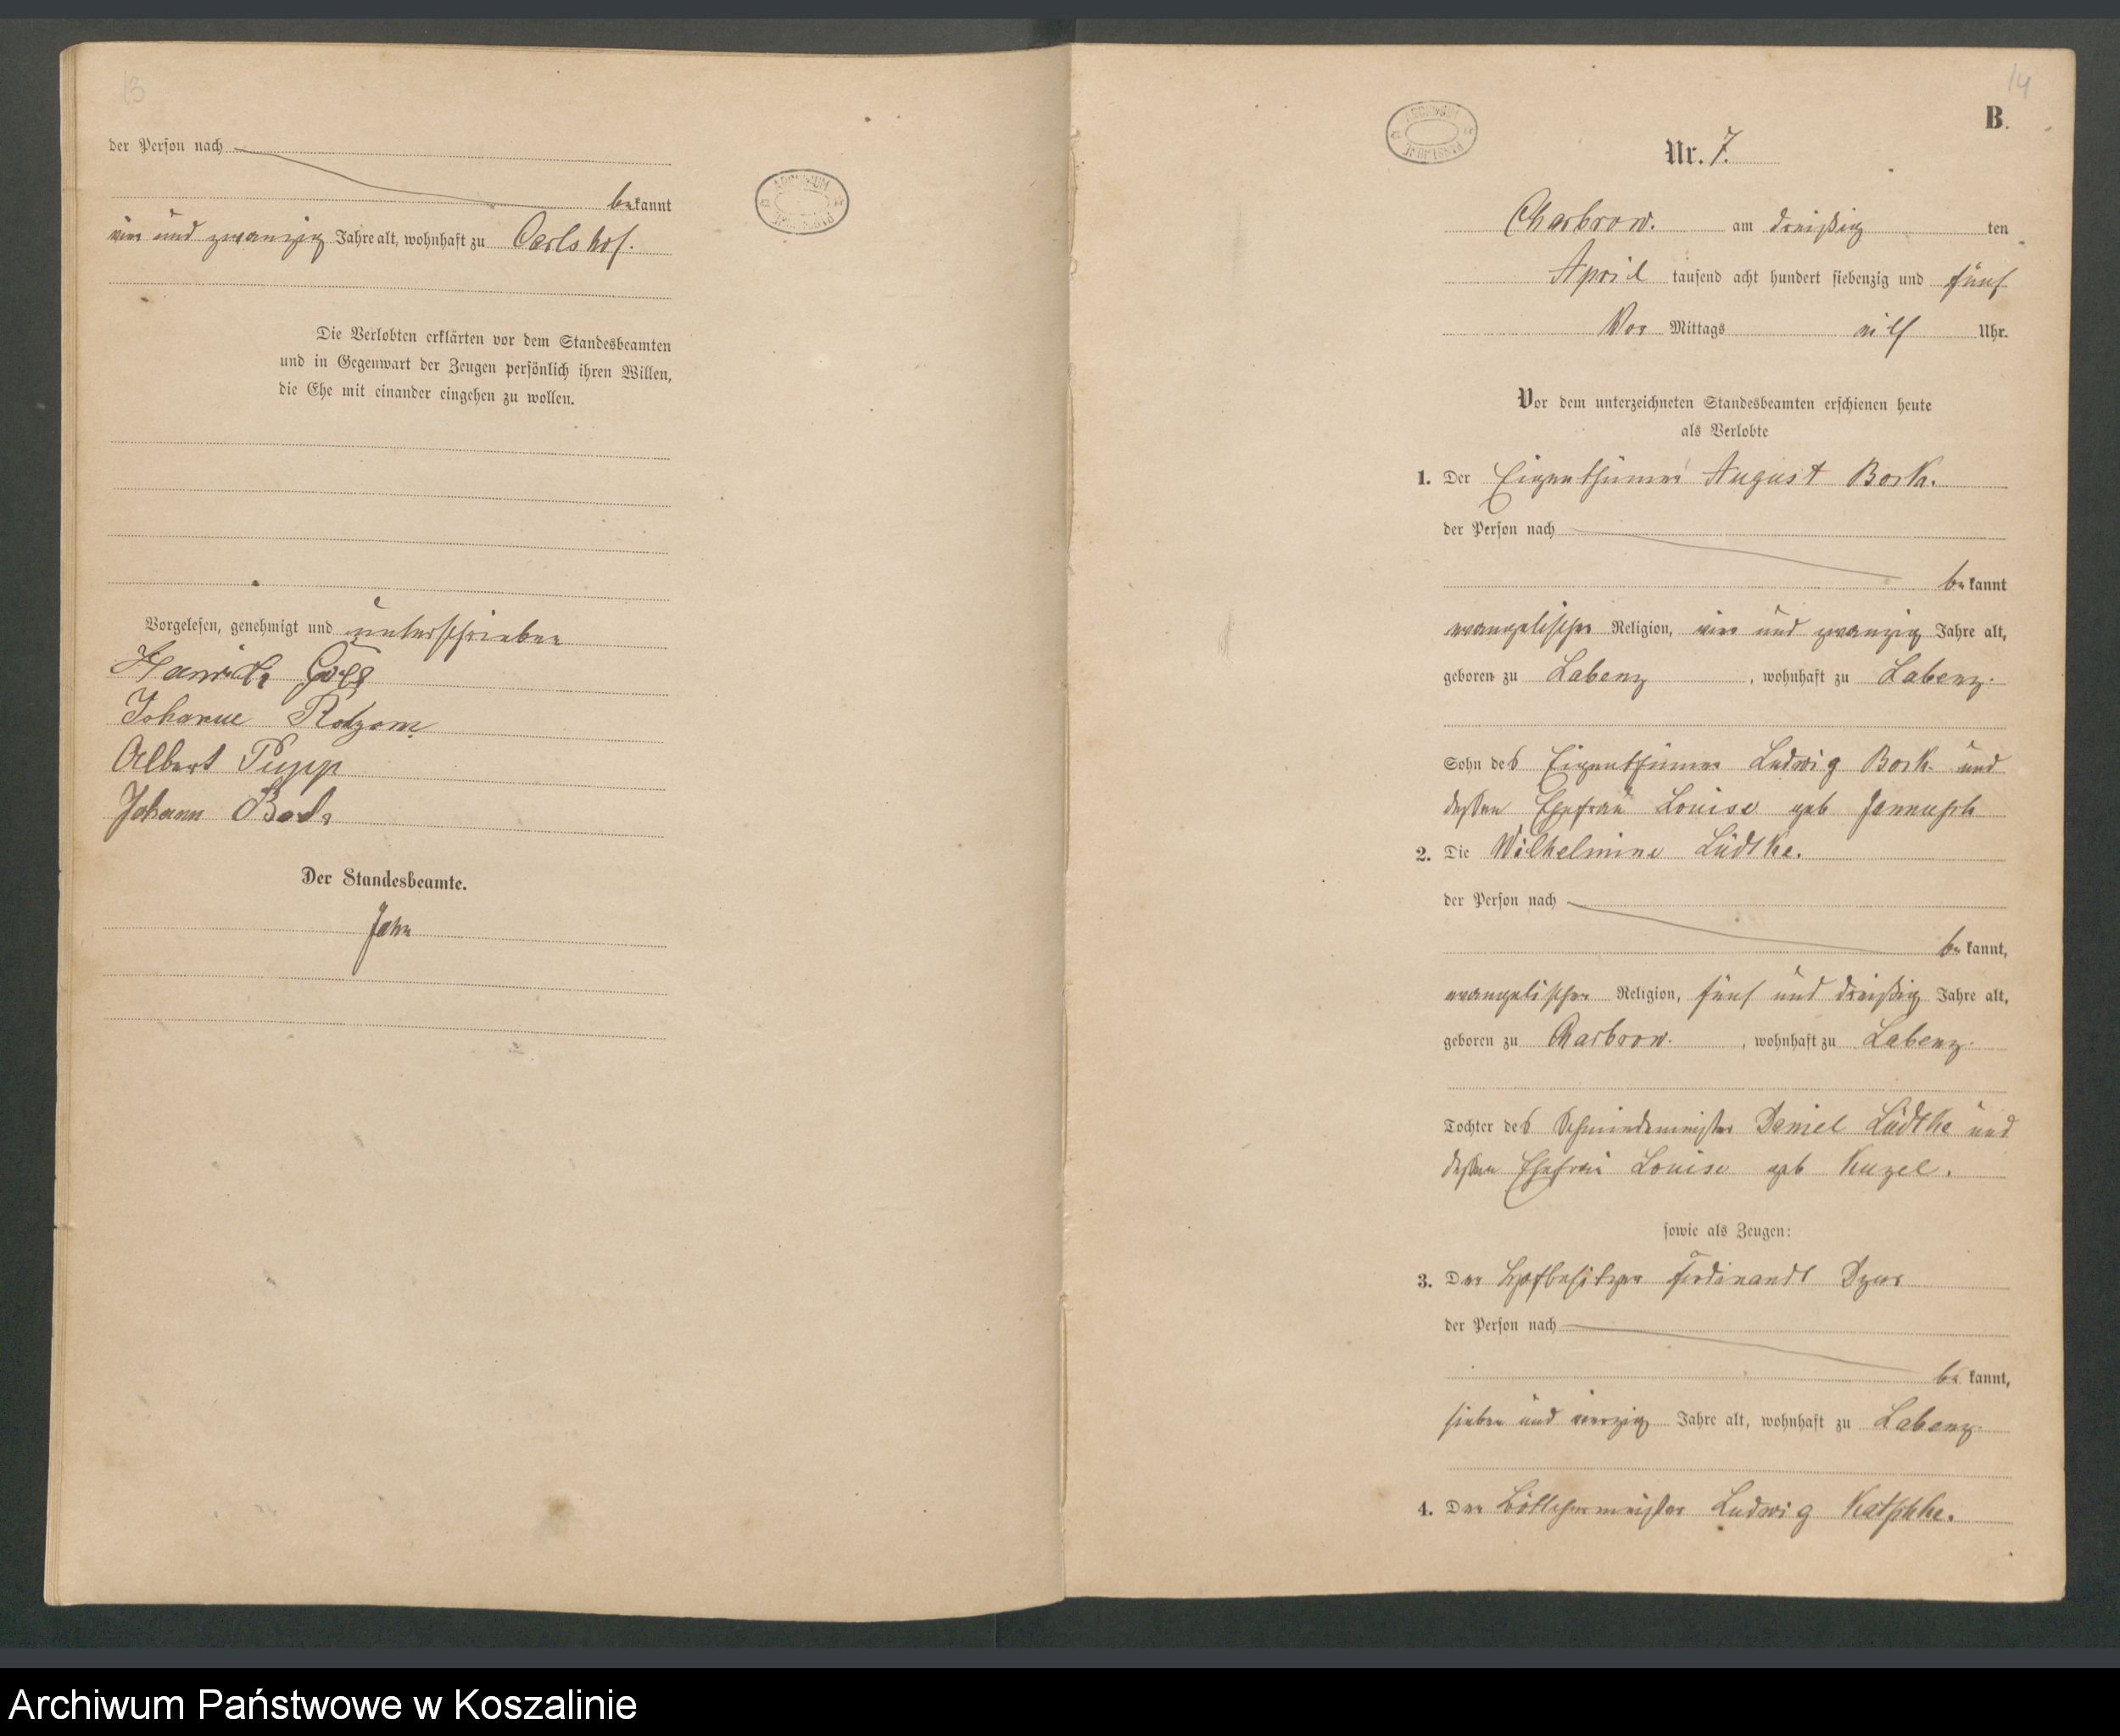 13
der Person nach
bekannt
vier und zwanzig Jahre alt, wohnhaft zu Carlshof.
Die Verlobten erklärten vor dem Standesbeamten
und in Gegenwart der Zeugen persönlich ihren Willen,
die Ehe mit einander eingehen zu wollen.
Vorgelesen, genehmigt und unterschrieben
Johanne
Albert Pupp
Johann
Der Standesbeamte.
Jahn
ARCHIWUM
14
B.
ARCHIWUM
PAŃSTWOWE
Nr. 7.
Charbrow. am dreißig ten
April tausend acht hundert siebenzig und fünf
Vor Mittags elf Uhr.
Vor dem unterzeichneten Standesbeamten erschienen heute
als Verlobte
1. Der Eigenthümer August Bork.
der Person nach
bekannt
evangelischer Religion, vier und zwanzig Jahre alt,
geboren zu Labenz, wohnhaft zu Labenz.
Sohn des Eigenthümer Ludwig Bork und
dessen Ehefrau Louise geb
2. Die Wilhelmine Lüdtke.
der Person nach
bekannt,
evangelischer Religion, fünf und dreißig Jahre alt,
geboren zu Charbrow., wohnhaft zu Labenz.
Tochter des Schmiedemeister Daniel Lüdtke und
dessen Ehefrau Louise geb Kuzel.
sowie als Zeugen:
3. Der Hofbesitzer Ferdinandt
der Person nach
bekannt,
sieben und vierzig Jahre alt, wohnhaft zu Labenz.
4. Der Böttchermeister Ludwig
Archiwum Państwowe w Koszalinie